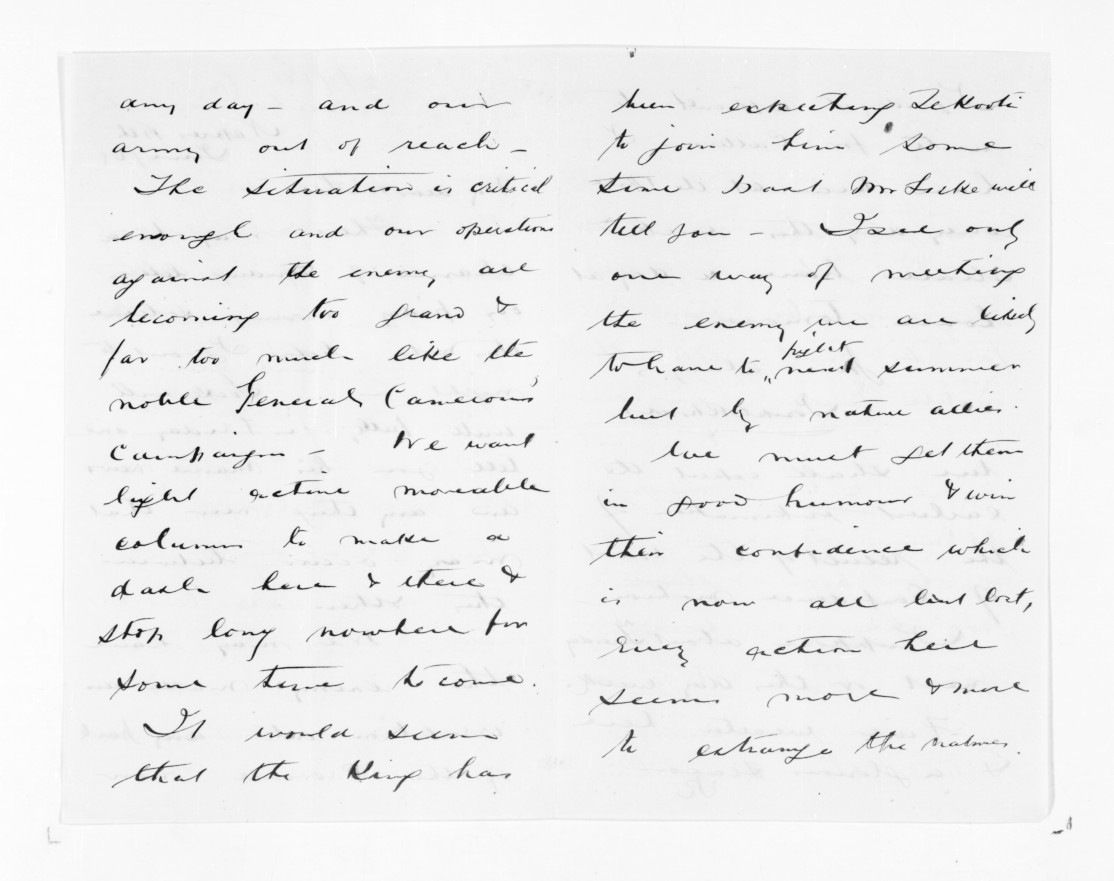 any day - and our
army out of reach -
The situation is critical
enough and our operations
against the enemy are
becoming too grand &
far too much like the
noble General Cameron's
Campaign - We want
light active moveable
columns to make a
dash here & there &
stop long nowhere for
some time to come.
It would seem
that the King has
been expecting Te Kooti
to join him some
time back Mr Locke will
tell you - I see only
one way of meeting
the enemy we are likely
to have to fight next summer
but by native allies.
We must get them
in good humour & win
their confidence which
is now all but lost,
Every action here
seems more & more
to estrange the natives.